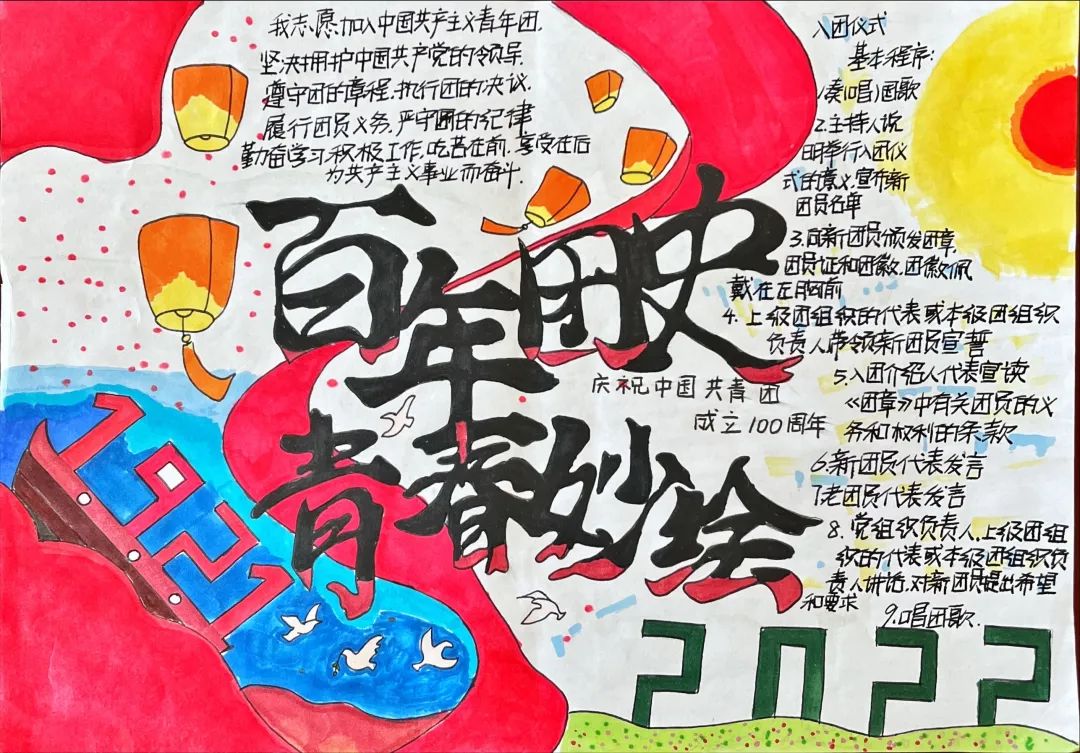 我志愿加入中国共产主义青年团,
坚决拥护中国共产党的领导.
遵守团的章程.执行团的决议,
履行团员义务.严守团的纪律
勤奋学习.积极工作.吃苦在前.享受在后
为共产主义事业而奋斗.
百年团史
青春妙绘
庆祝中国共青团
成立100周年
1921
入团仪式
基本程序:
1奏(唱)国歌
2.主持人说
明举行入团仪
式的意义.宣布新
团员名单
3.向新团员颁发团章,
团员证和团徽.团徽佩
戴在左胸前
4.上级团组织的代表或本级团组织
负责人带领新团员宣誓
5.入团介绍人代表宣读
《团章》中有关团员的义
务和权利的条款
6.新团员代表发言
7.老团员代表发言
8.党组织负责人.上级团组
织的代表或本级团组织负
责人讲话.对新团员提出希望
和要求
9.唱团歌.
2022